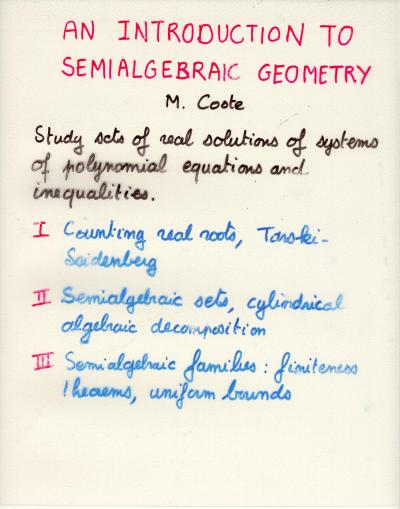 AN INTRODUCTION TO
SEMIALGEBRAIC GEOMETRY
M. Coste
Study sets of real solutions of systems
of polynomial equations and
inequalities.
I Counting real roots, Tarski-
Seidenberg
II Semialgebraic sets, cylindrical
algebraic decomposition
III Semialgebraic families : finiteness
theorems, uniform bounds